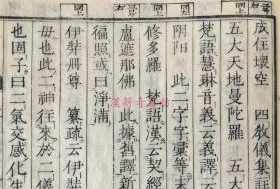 成住壞空　四敎儀集
五大天地曼陀羅　五
梵語慧琳音義云義譯云
陰陽　此二字字彙等本
修多羅　梵語漢云契經
盧遮那佛　此據舊譯新
徧照或曰淨滿
伊弉冊尊　纂疏云伊弉
毋也此二神徃來於二儀
也固子曰二氣交感化生